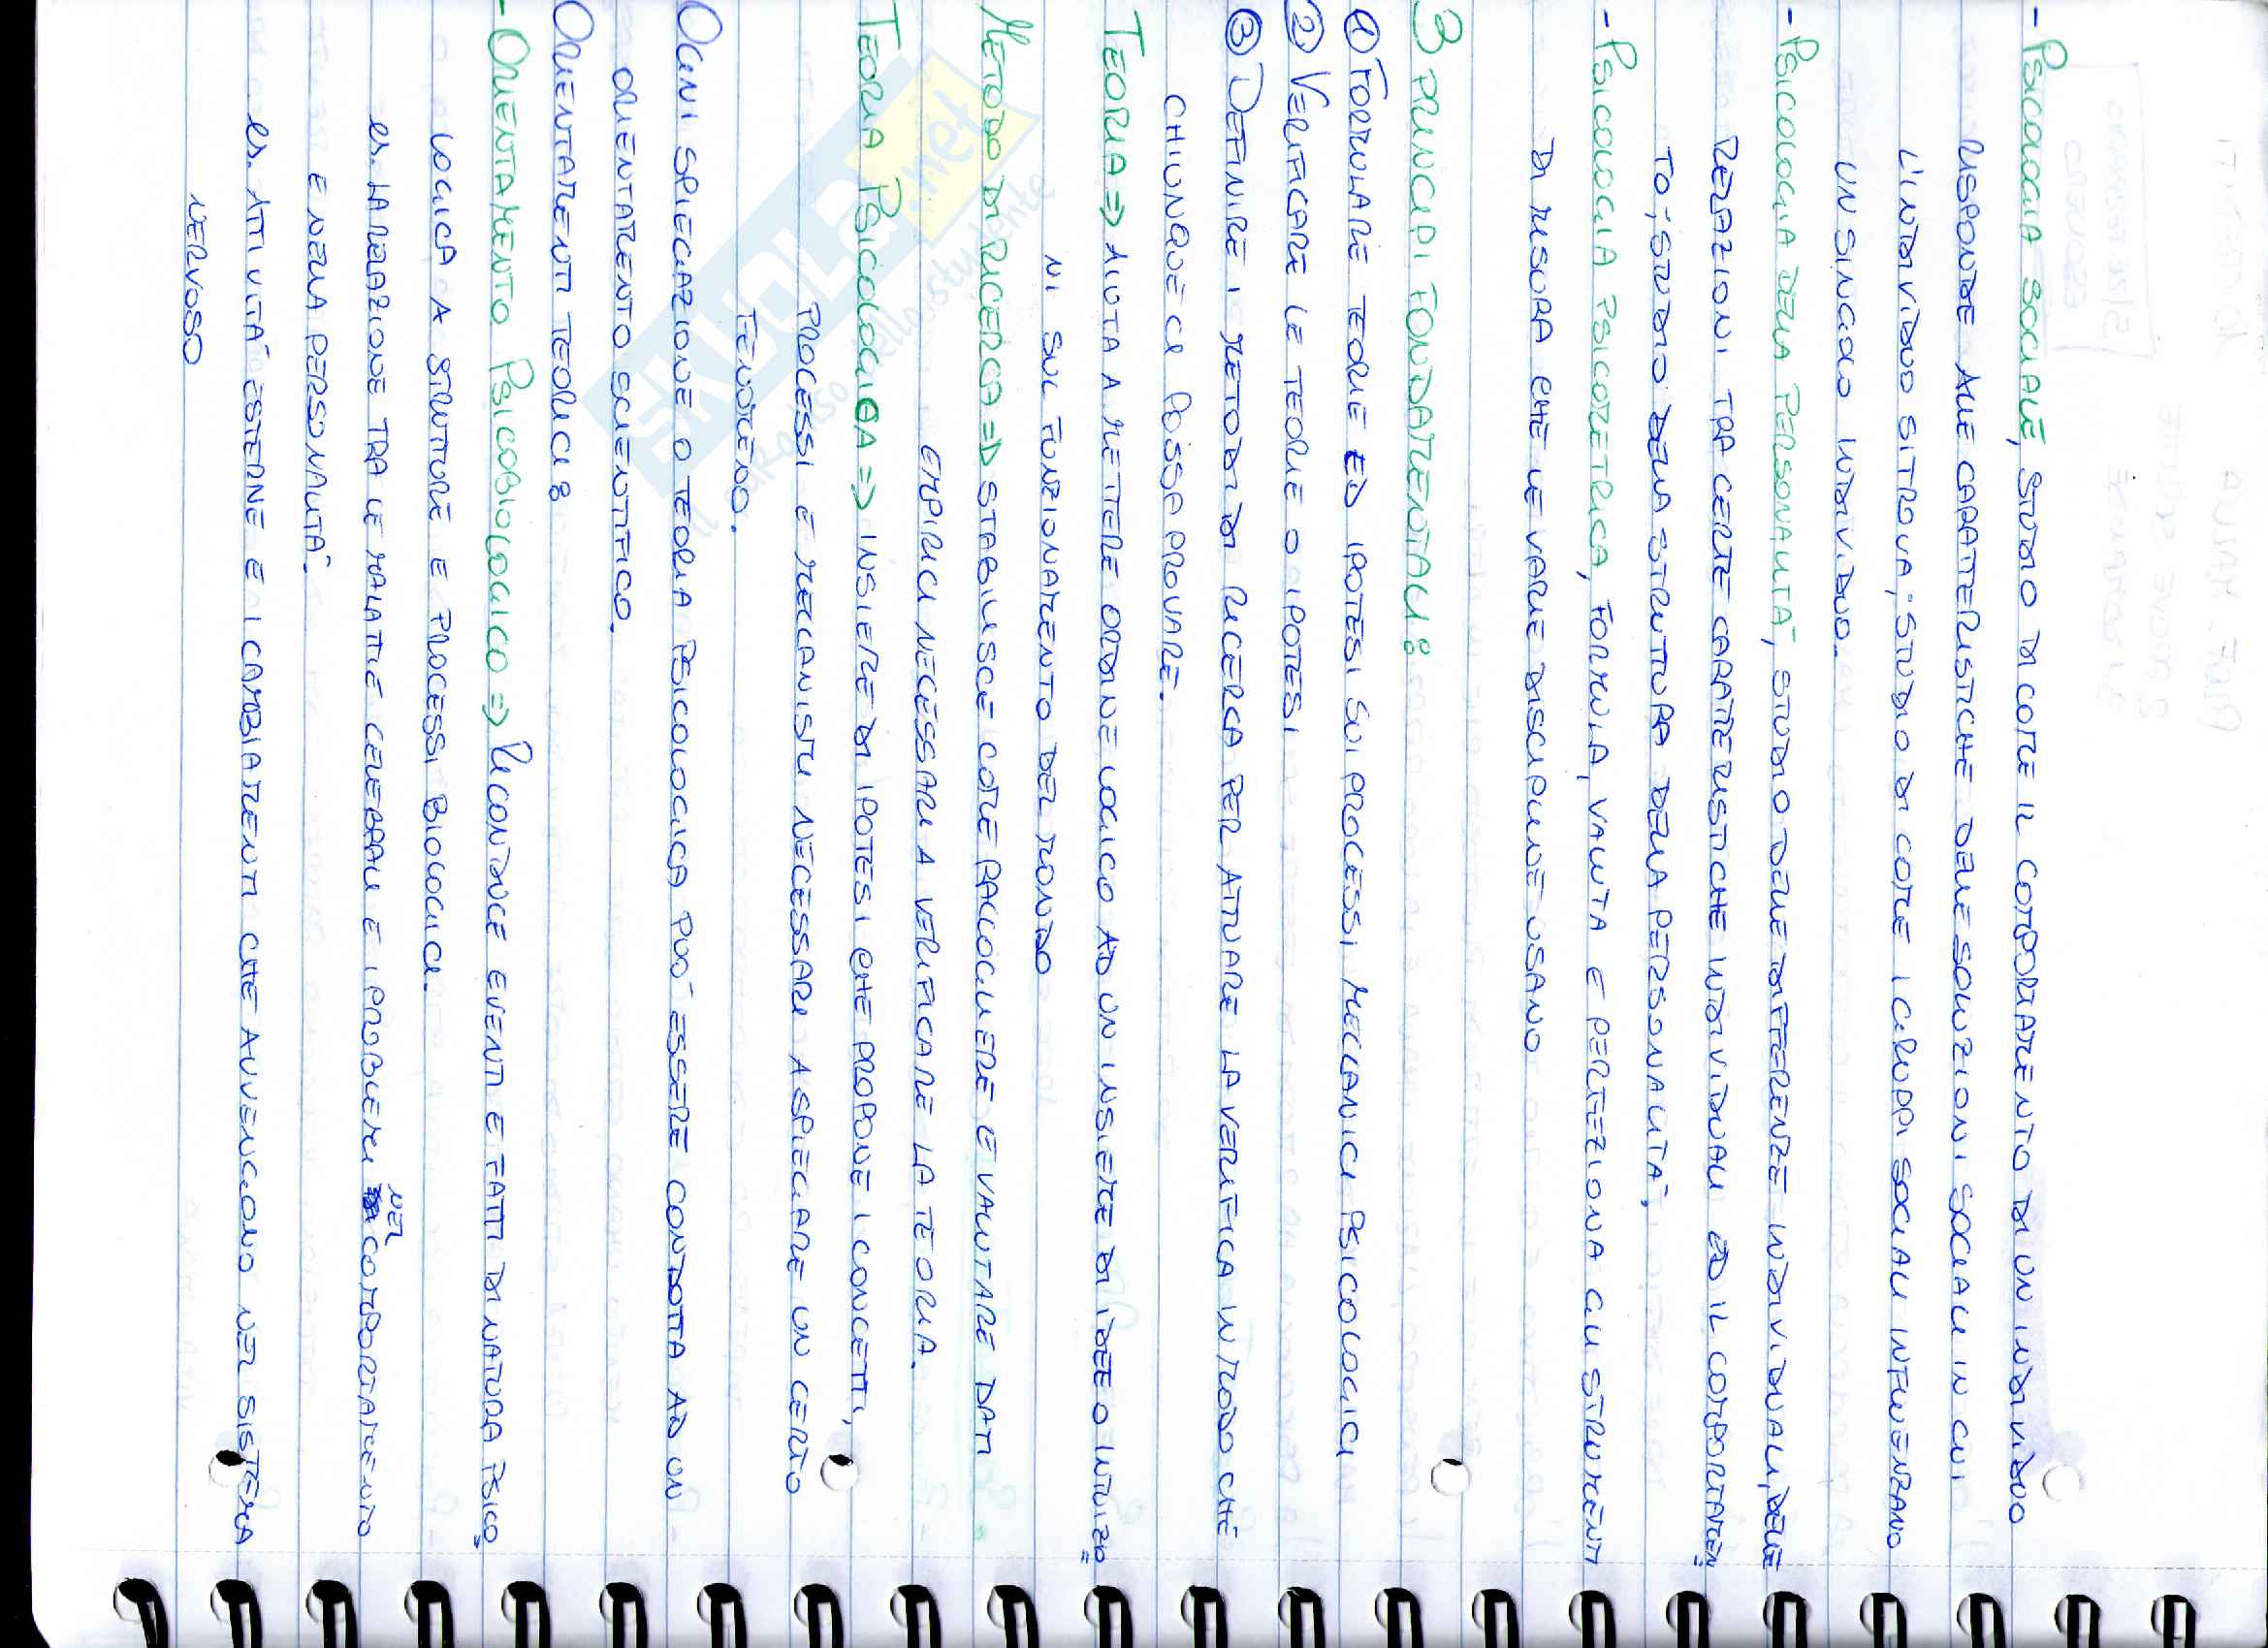 - PSICOLOGIA SOCIALE, STUDIO DI COME IL COMPORTAMENTO DI UN INDIVIDUO
RISPONDE ALLE CARATTERISTICHE DELLE SOLUZIONI SOCIALI IN CUI
L'INDIVIDUO SI TROVA; STUDIO DI COME I GRUPPI SOCIALI INFLUENZANO
UN SINGOLO INDIVIDUO.
- PSICOLOGIA DELLA PERSONALITÀ, STUDIO DELLE DIFFERENZE INDIVIDUALI, DELLE
RELAZIONI TRA CERTE CARATTERISTICHE INDIVIDUALI ED IL COMPORTAMEN=
TO; STUDIO DELLA STRUTTURA DELLA PERSONALITÀ,
- PSICOLOGIA PSICOMETRICA, FORMULA, VALUTA E PERFEZIONA GLI STRUMENTI
DI MISURA CHE LE VARIE DISCIPLINE USANO
3 PRINCIPI FONDAMENTALI:
① FORMULARE TEORIE ED IPOTESI SUI PROCESSI, MECCANICI PSICOLOGICI
② VERIFICARE LE TEORIE O IPOTESI
③ DEFINIRE I METODI DI RICERCA PER ATTUARE LA VERIFICA IN MODO CHE
CHIUNQUE CI POSSA PROVARE.
TEORIA => AIUTA A METTERE ORDINE LOGICO AD UN INSIEME DI IDEE O INTUIZIO=
NI SUL FUNZIONAMENTO DEL MONDO
METODO DI RICERCA => STABILISCE COME RACCOGLIERE E VALUTARE DATI
EMPIRICI NECESSARI A VERIFICARE LA TEORIA.
TEORIA PSICOLOGICA => INSIEME DI IPOTESI CHE PROPONE I CONCETTI,
PROCESSI E MECCANISMI NECESSARI A SPIEGARE UN CERTO
FENOMENO.
OGNI SPIEGAZIONE O TEORIA PSICOLOGICA PUÒ ESSERE CONDOTTA AD UN
ORIENTAMENTO SCIENTIFICO.
ORIENTAMENTI TEORICI:
- ORIENTAMENTO PSICOBIOLOGICO => RICONDUCE EVENTI E FATTI DI NATURA PSICO=
LOGICA A STRUTTURE E PROCESSI BIOLOGICI.
es. LA RELAZIONE TRA LE MALATTIE CEREBRALI E I PROBLEMI NEL COMPORTAMENTO
E NELLA PERSONALITÀ.
es. ATTIVITÀ ESTERNE E I CAMBIAMENTI CHE AVVENGONO NEL SISTEMA
NERVOSO
SKUOLA.net
il paradiso dello studente